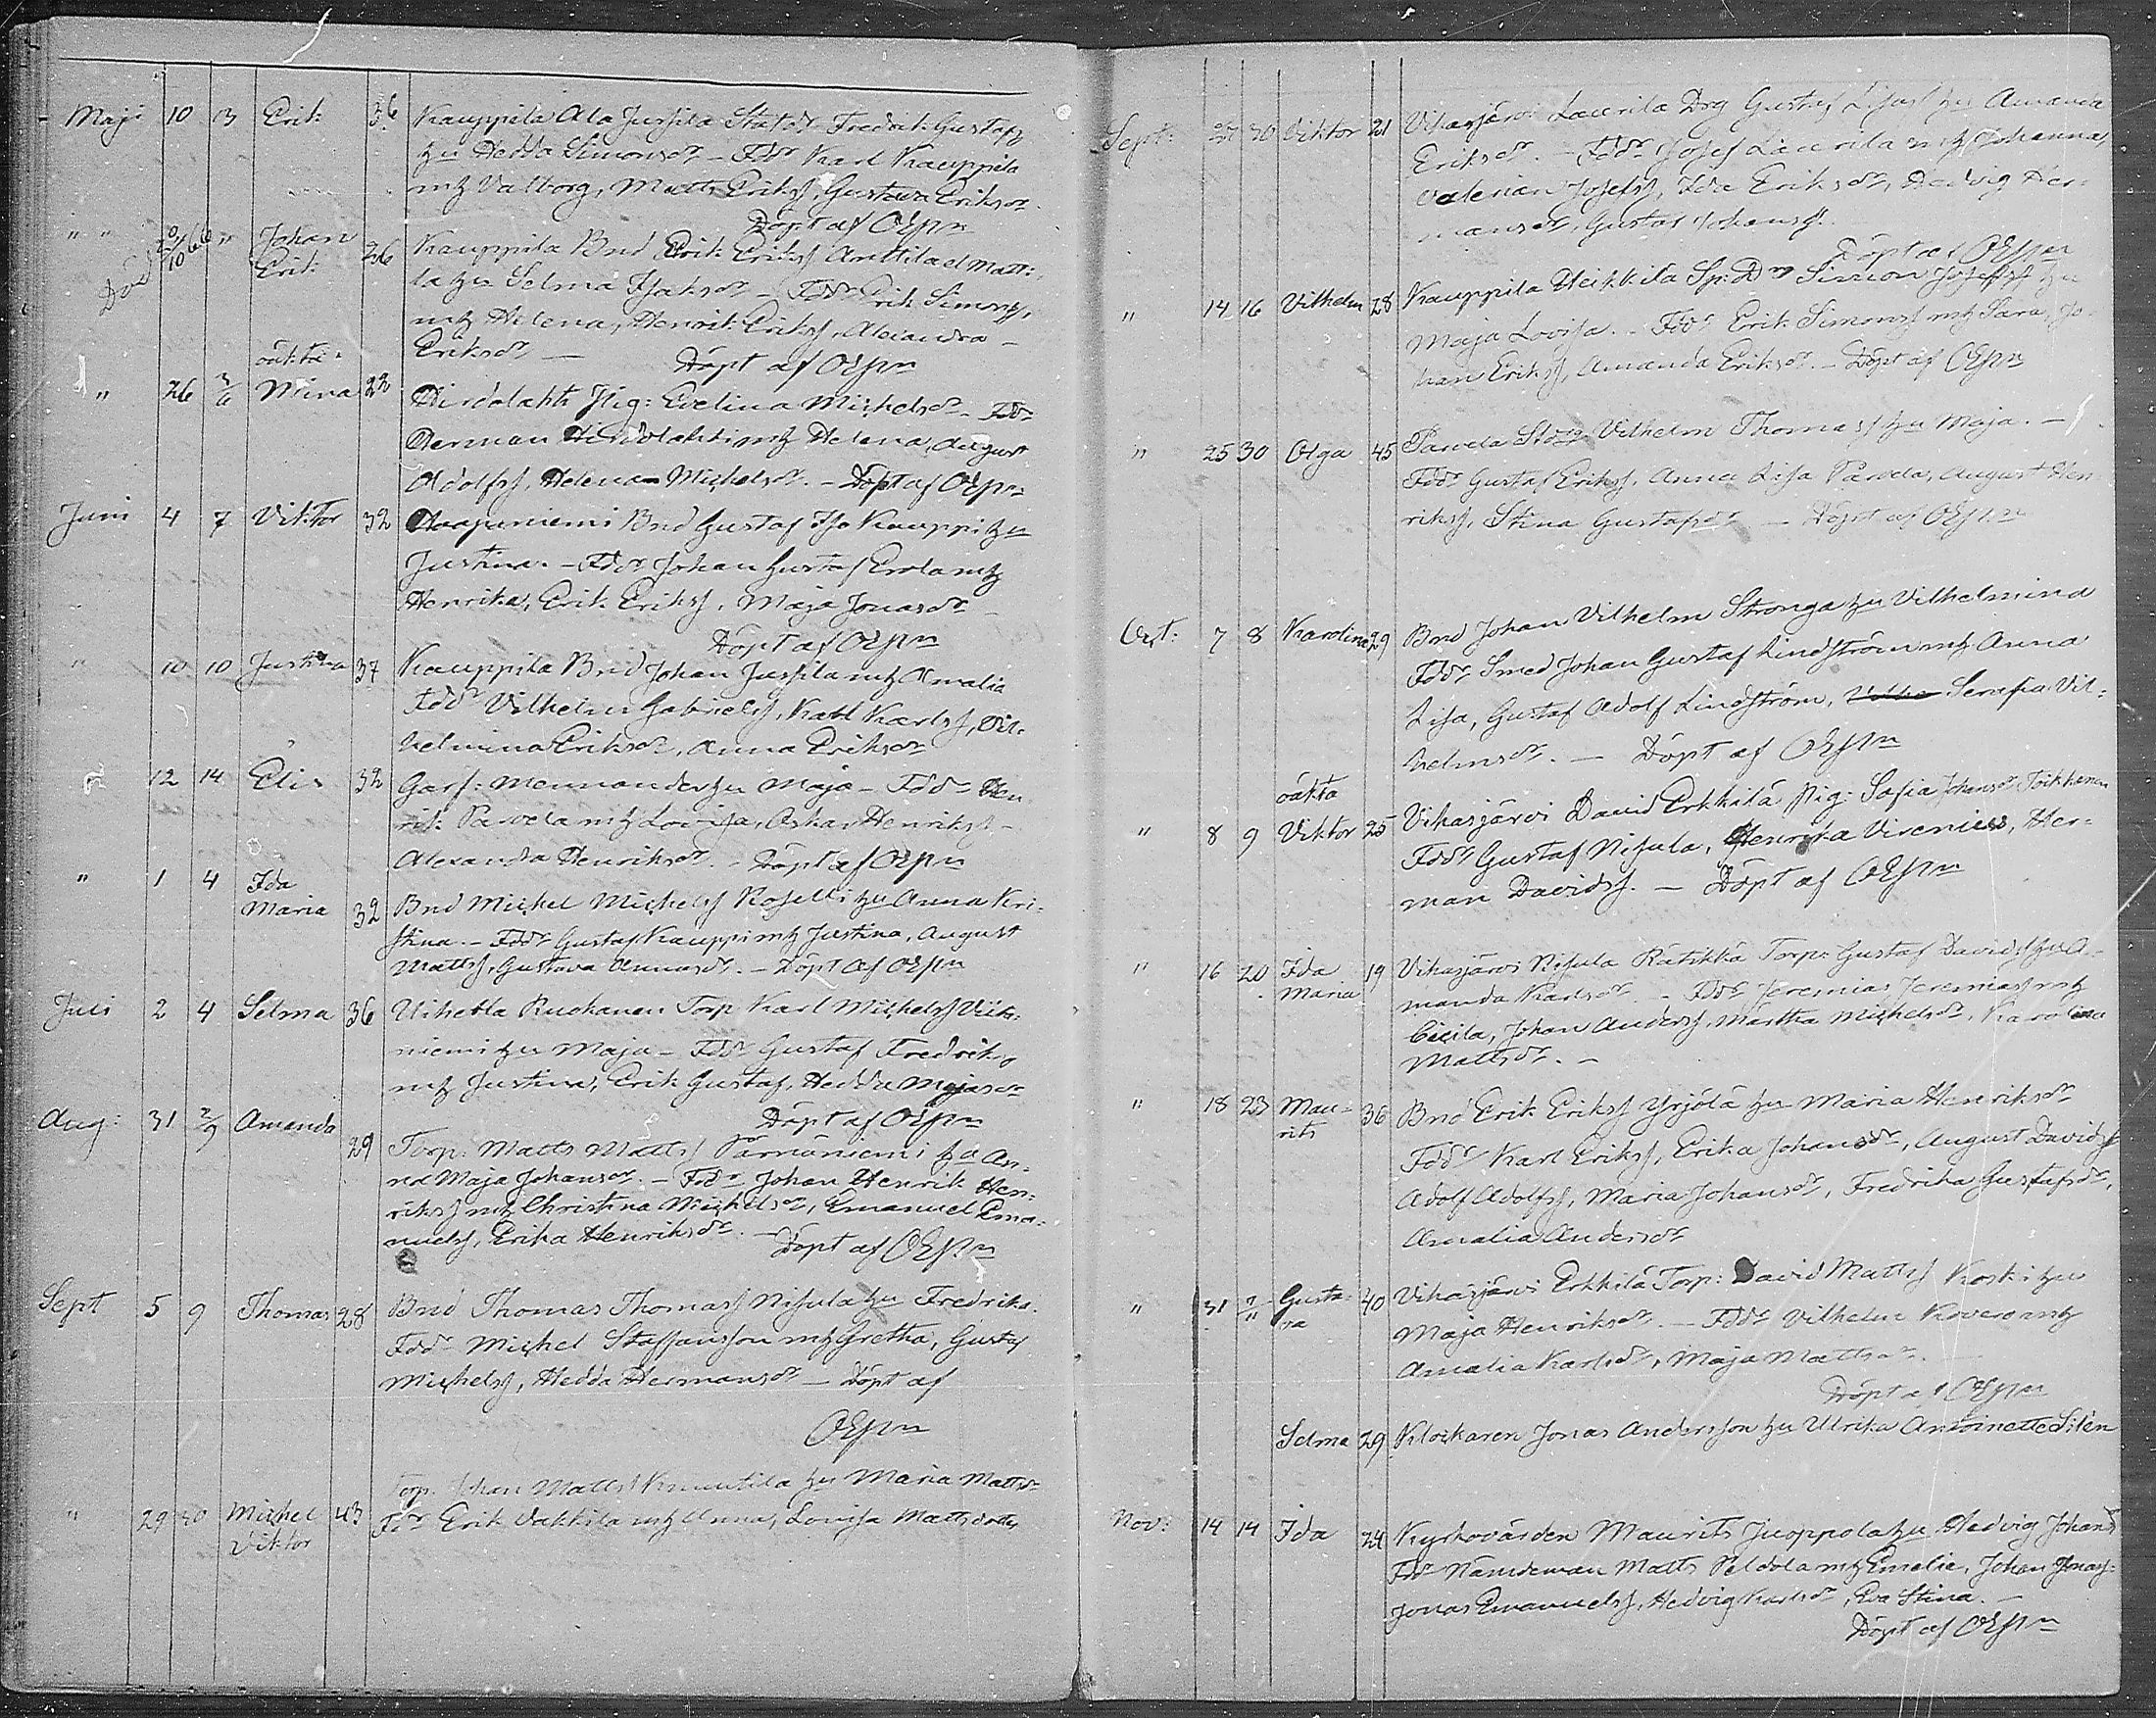 Maji 10 3 Erik 36 Kauppila Ala Jussila Statdr. Fredrik Gustafss
hu Hedda Simonsdr – Fddr Karl Kauppila
mh Valborg, Matts Erikss, Gustava Eriksdr.
Döpt af OEpn
" " " Johan Erik 26 Kauppila Bnd Erik Erikss Anttila el Matti-
Död 10/10 66
la hu Selma Isaksdr – Fddr Erik Simonss,
mh Helena, Henrik Erikss, Alexandra
Eriksdr — Döpt af OEpn
oäkta
" 26 3/6 Mina 22 Hirdolahti Pig: Evelina Michelsdr – Fddr
Herman Hirdolahti mh Helena, August
Adolfss, Helena Michelsdr. – Döpt af OEpn
Juni 4 7 Viktor 32 Haapaniemi Bnd Gustaf Iso Kauppi hu
Justina. – Fddr Johan Gustaf Erola mh
Henrika, Erik Erikss, Maja Jonasdr –
Döpt af OEpn
" 10 10 Justina 37 Kauppila Bnd Johan Jussila mh Amalia
Fddr Vilhelm Gabrielss, Karl Karlss, Vil-
helmina Eriksdr, Anna Eriksdr
12 14 Elis 32 Garf: Mennander hu Maja – Fddr Hen
rik Pavela mh Lovisa, Oskar Henrikss –
Alexandra Henriksdr. – Döpt af OEpn
" 1 4 Ida
Maria 32 Bnd Michel Michelss Koselli hu Anna Kri-
stina. – Fddr Gustaf Kauppi mh Justina, August
Mattss, Gustava Annasdr. – Döpt af OEpn
Juli 2 4 Selma 36 Uihetla Ruokanen Torp Karl Michelss Viita-
niemi hu Maja – Fddr Gustaf Fredriks
mh Justina, Erik Gustaf, Hedda Majasdr
Döpt af OEpn
Aug: 31 2/9 Amanda 29 Torp: Matts Mattss Pärnäniemi hu An-
na Maja Johansdr. – Fddr Johan Henrik Hen-
rikss mh Christina Michelsdr, Emanuel Ema-
nuelss, Erika Henriksdr. – Döpt af OEpn
Sept 5 9 Thomas 28 Bnd Thomas Thomass Nisula hu Fredrika.
Fddr Michel Staffansson mh Gretha, Gustaf
Michelss, Hedda Hermansdr – Döpt af
OEpn
Torp. Johan Mattss hu Maria Mattsdr
" 29 30 Michel
Viktor 43 Fddr Erik Vakkila mh Anna, Lovisa Mattsdotter
Sept: 27 30 Viktor 21 Vihasjärvi Laurila Drg Gustaf hu Amanda
Eriksdr. – Fddr Josef Laurila mh Johanna,
Valerian Josefss, Ida Eriksdr, Hedvig Her-
mansdr, Gustaf Johanss.
Döpt af OEpn
" 14 16 Vilhelm 28 Kauppila Heikkilä Sp: Dr Simon Josefss hu
Maja Lovisa. – Fddr Erik Simonss mh Sara, Jo-
han Erikss, Amanda Eriksdr. – Döpt af OEpn
" 25 30 Olga 45 Pavela Vilhelm Thomass hu Maja. –
Fddr Gustaf Erikss, Anna Lisa Pavela, August Hen
rikss, Stina Gustafsdr – Döpt af OEpn
Oct: 7 8 Karolina 29 Bnd Johan Vilhelm Stronga hu Vilhelmina
Fddr Smed Johan Gustaf Lindström mh Anna
Lisa, Gustaf Adolf Lindström, Serafia Vil-
helmsdr. – Döpt af OEpn
oäkta
" 8 9 Viktor 25 Vihasjärvi David Erkkilä Pig: Sofia Johansdr Toikkanen
Fddr Gustaf Nisula, Henrika Virenius, Her-
man Davidss. – Döpt af OEpn
" 16 20 Ida
Maria 19 Vihasjärvi Nisula Rätikkä Torp: Gustaf Davidss hu A-
manda Karlsdr. – Fddr Jeremias Jeremiass mh
Cecila, Johan Anderss, Martha Michelsdr, Karolina
Mattsdr. –
" 18 23 Mau-
rits 36 Bnd Erik Erikss Yrjölä hu Maria Henriksdr
Fddr Karl Erikss, Erika Johansdr, August Davidss
Adolf Adolfss, Maria Johansdr, Fredrika Gustafsdr,
Amalia Andersdr
" 31 2/11 Gusta-
va 40 Vihasjärvi Erkkilä Torp: David Mattss Koski hu
Maja Henriksdr. – Fddr Vilhelm Kovero mh
Amalia Karlsdr, Maja Mattsdr.
Döpt af OEpn
Selma 29 Klockaren Jonas Andersson hu Ulrika Antoinette Silén
Nov: 14 14 Ida 24 Kyrkovärden Maurits Juoppola hu Hedvig Johansd
Fddr Nämdeman Matts Peldola mh Emelie, Johan Jonass:
Jonas Emanuelss, Hedvig Karlsdr, Eva Stina. –
Döpt af OEpn